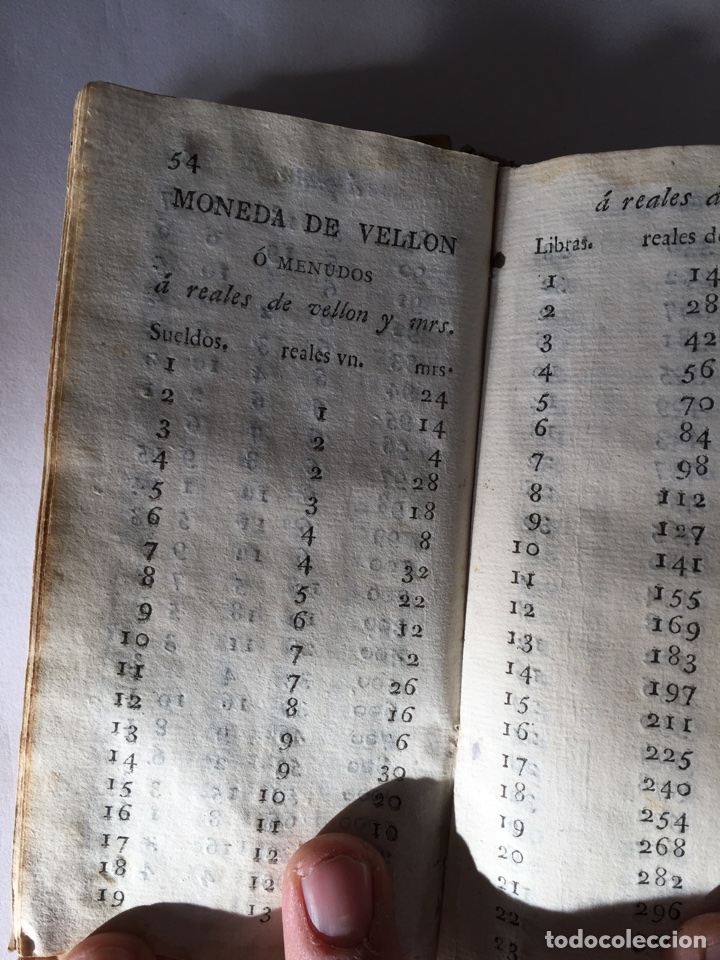 54
MONEDA DE VELLON
Ó MENUDOS
á reales de vellon y mrs.
Sueldos. reales vn. mrs.
1 24
2 1 14
3 2 4
4 2 28
5 3 18
6 4 8
7 4 32
8 5 22
9 6 12
10 7 2
11 7 26
12 8 16
13 9 6
14 9 30
15 10 20
16 11 10
17 12
18 12
19 13
á reales d
Libras. reales de
1 14
2 28
3 42
4 56
5 70
6 84
7 98
8 112
9 127
10 141
11 155
12 169
13 183
14 197
15 211
16 225
17 240
18 254
19 268
20 282
21 296
22
23
todocoleccion